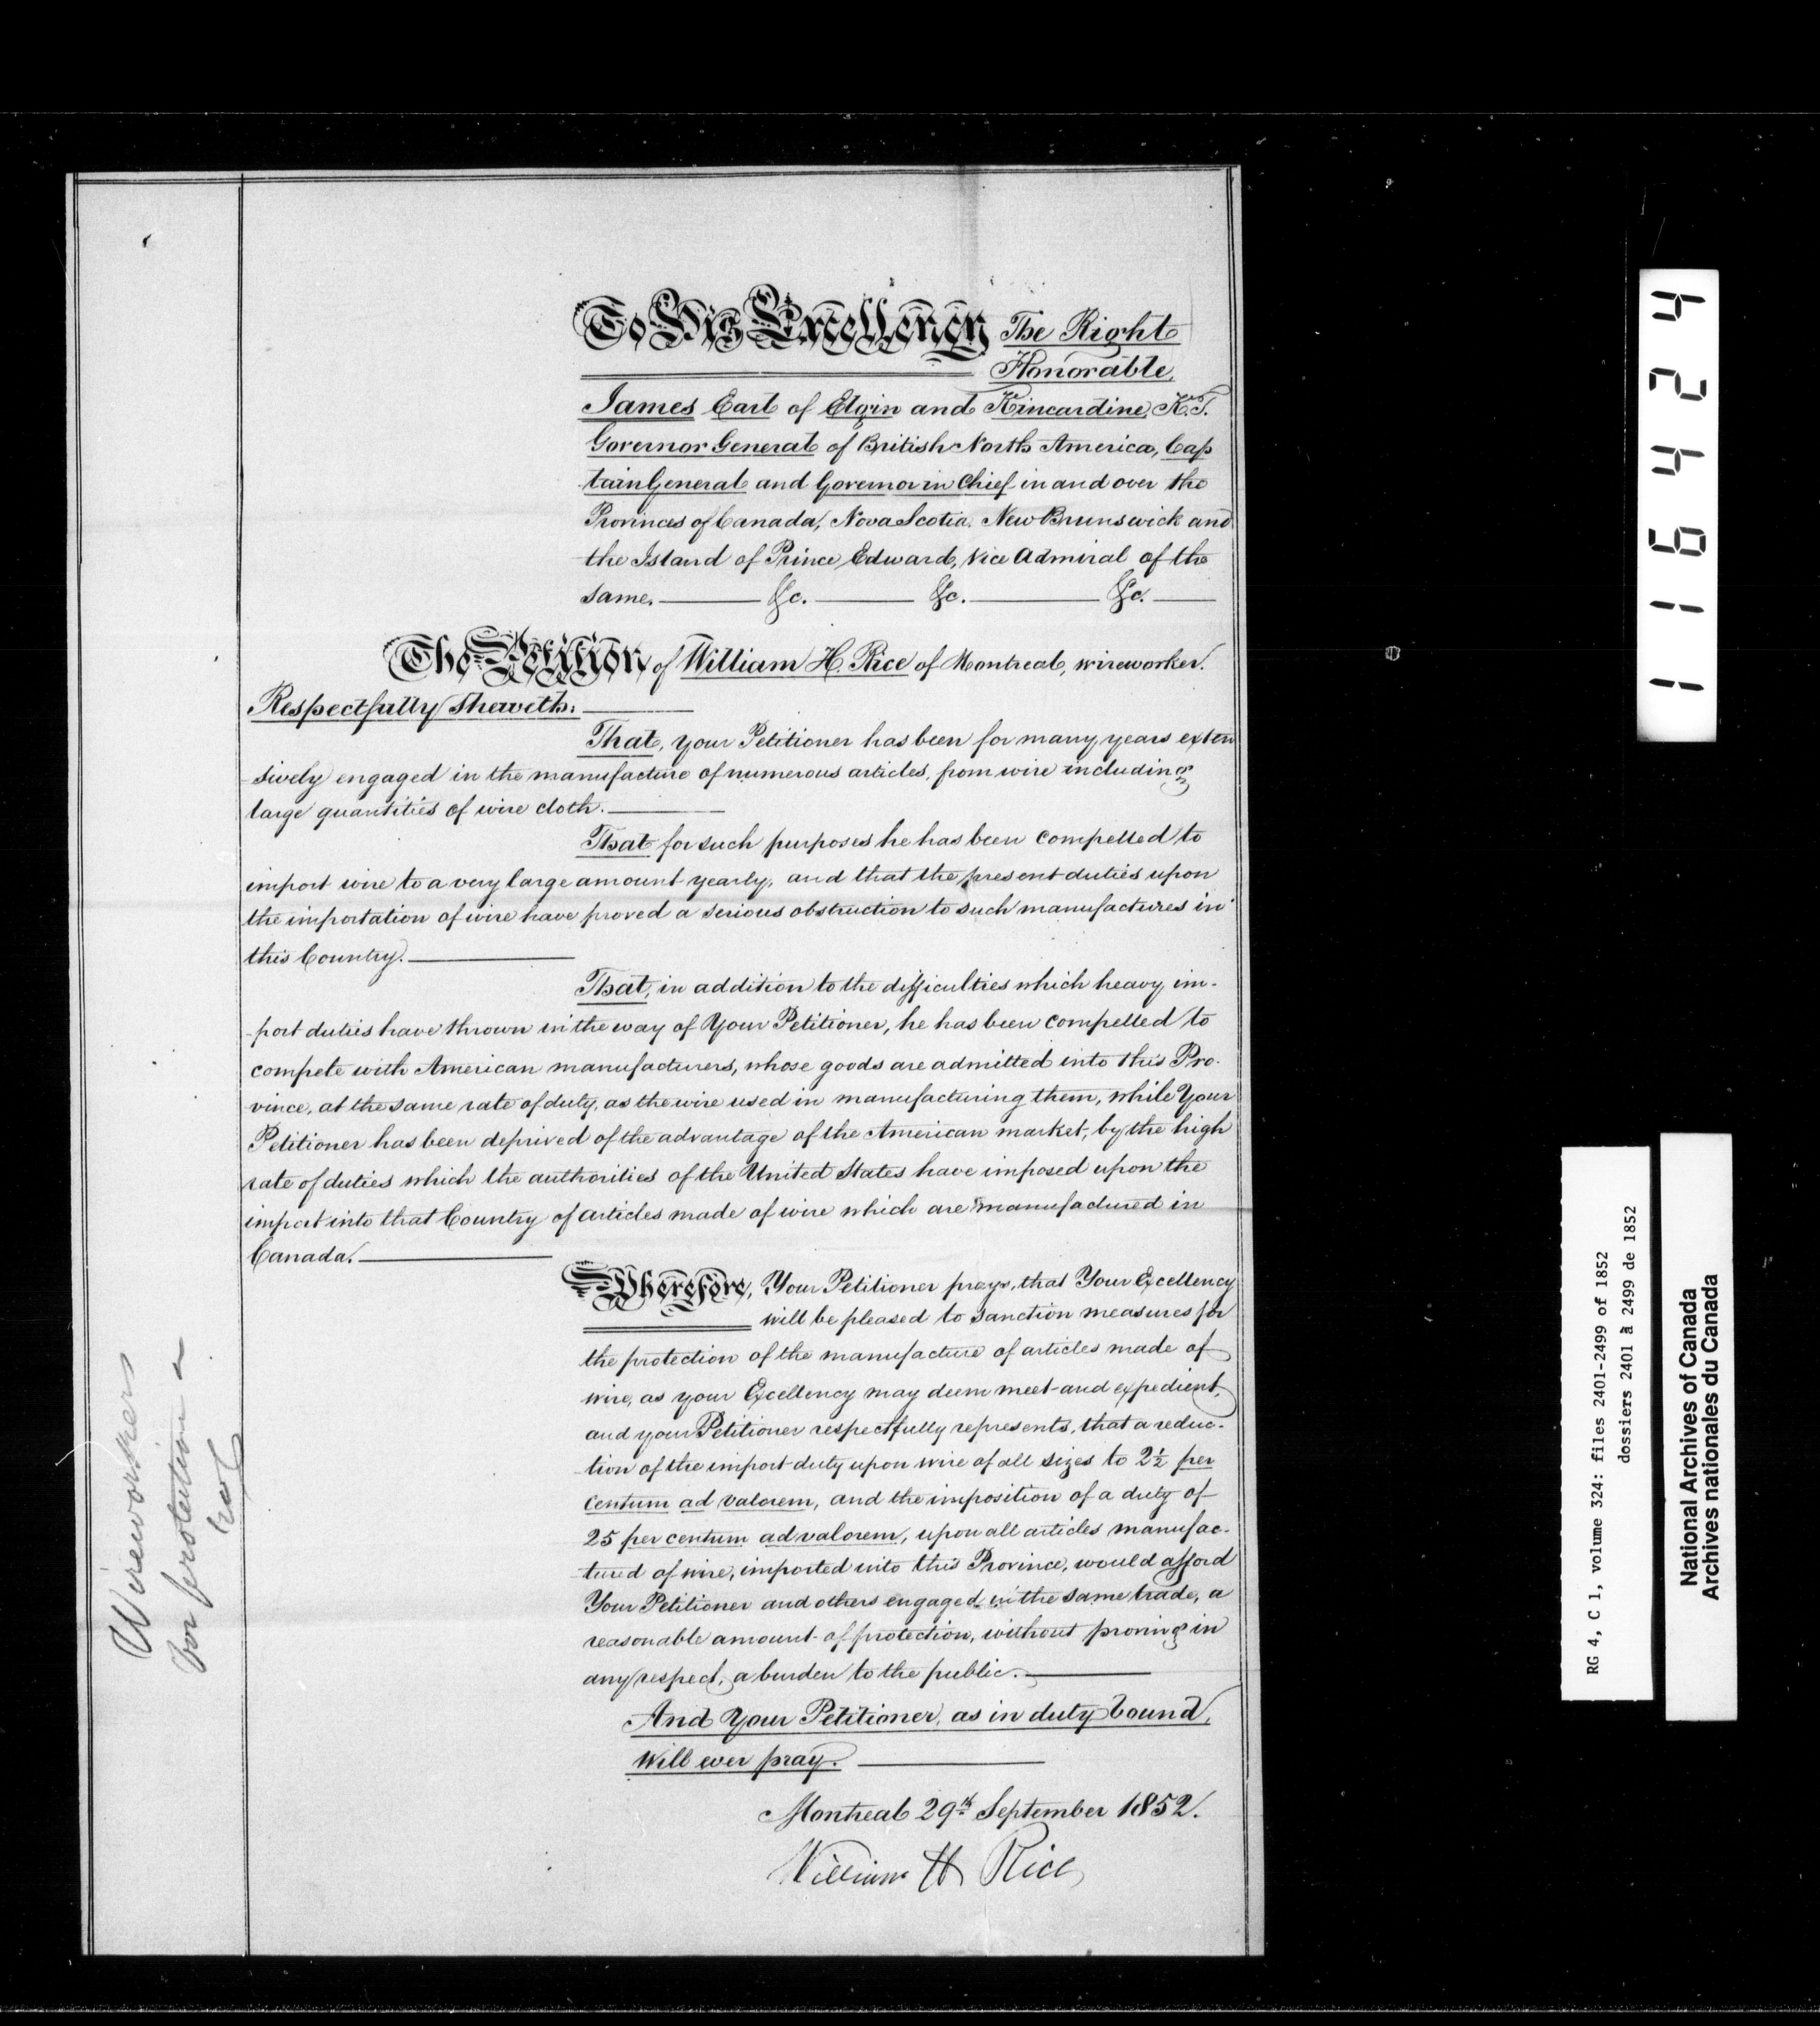 To His Excellency The Right
Honorable,
James Earl of Elgin and Kincardine, K.T.
Governor General of British North America, Cap
tain General and Governor in Chief in and over the
Provinces of Canada, Nova Scotia, New Brunswick and
the Island of Prince Edward, Vice Admiral of the
same. &c. &c. &c.
The Petition of William H. Rice of Montreal, wireworker.
Respectfully Sheweth:
That, your Petitioner has been for many years exten
sively engaged in the manufacture of numerous articles, from wire including
large quantities of wire cloth.
That for such purposes he has been compelled to
import wire to a very large amount yearly, and that the present duties upon
the importation of wire have proved a serious obstruction to such manufactures in
this Country.
That, in addition to the difficulties which heavy im-
-port duties have thrown in the way of Your Petitioner, he has been compelled to
compete with American manufacturers, whose goods are admitted into this Pro-
vince, at the same rate of duty, as the wire used in manufacturing them, while Your
Petitioner has been deprived of the advantage of the American market, by the high
rate of duties which the authorities of the United States have imposed upon the
import into that Country of articles made of wire which are manufactured in
Canada.
Wherefore, Your Petitioner prays, that Your Excellency
will be pleased to sanction measures for
the protection of the manufacture of articles made of
wire, as your Excellency may deem meet and expedient,
and your Petitioner respectfully represents, that a reduc-
tion of the import duty upon wire of all sizes to 2½ per
centum ad valorem, and the imposition of a duty of
25 per centum ad valorem, upon all articles manufac-
tured of wire, imported into this Province, would afford
Your Petitioner and others engaged in the same trade, a
reasonable amount of protection, without proving in
any respect, a burden to the public.
And Your Petitioner, as in duty bound,
Will ever pray.
Montreal 29th September 1852.
William H Rice
Wireworkers
for protection
116424
RG 4, C 1, volume 324: files 2401-2499 of 1852
dossiers 2401 à 2499 de 1852
National Archives of Canada
Archives nationales du Canada